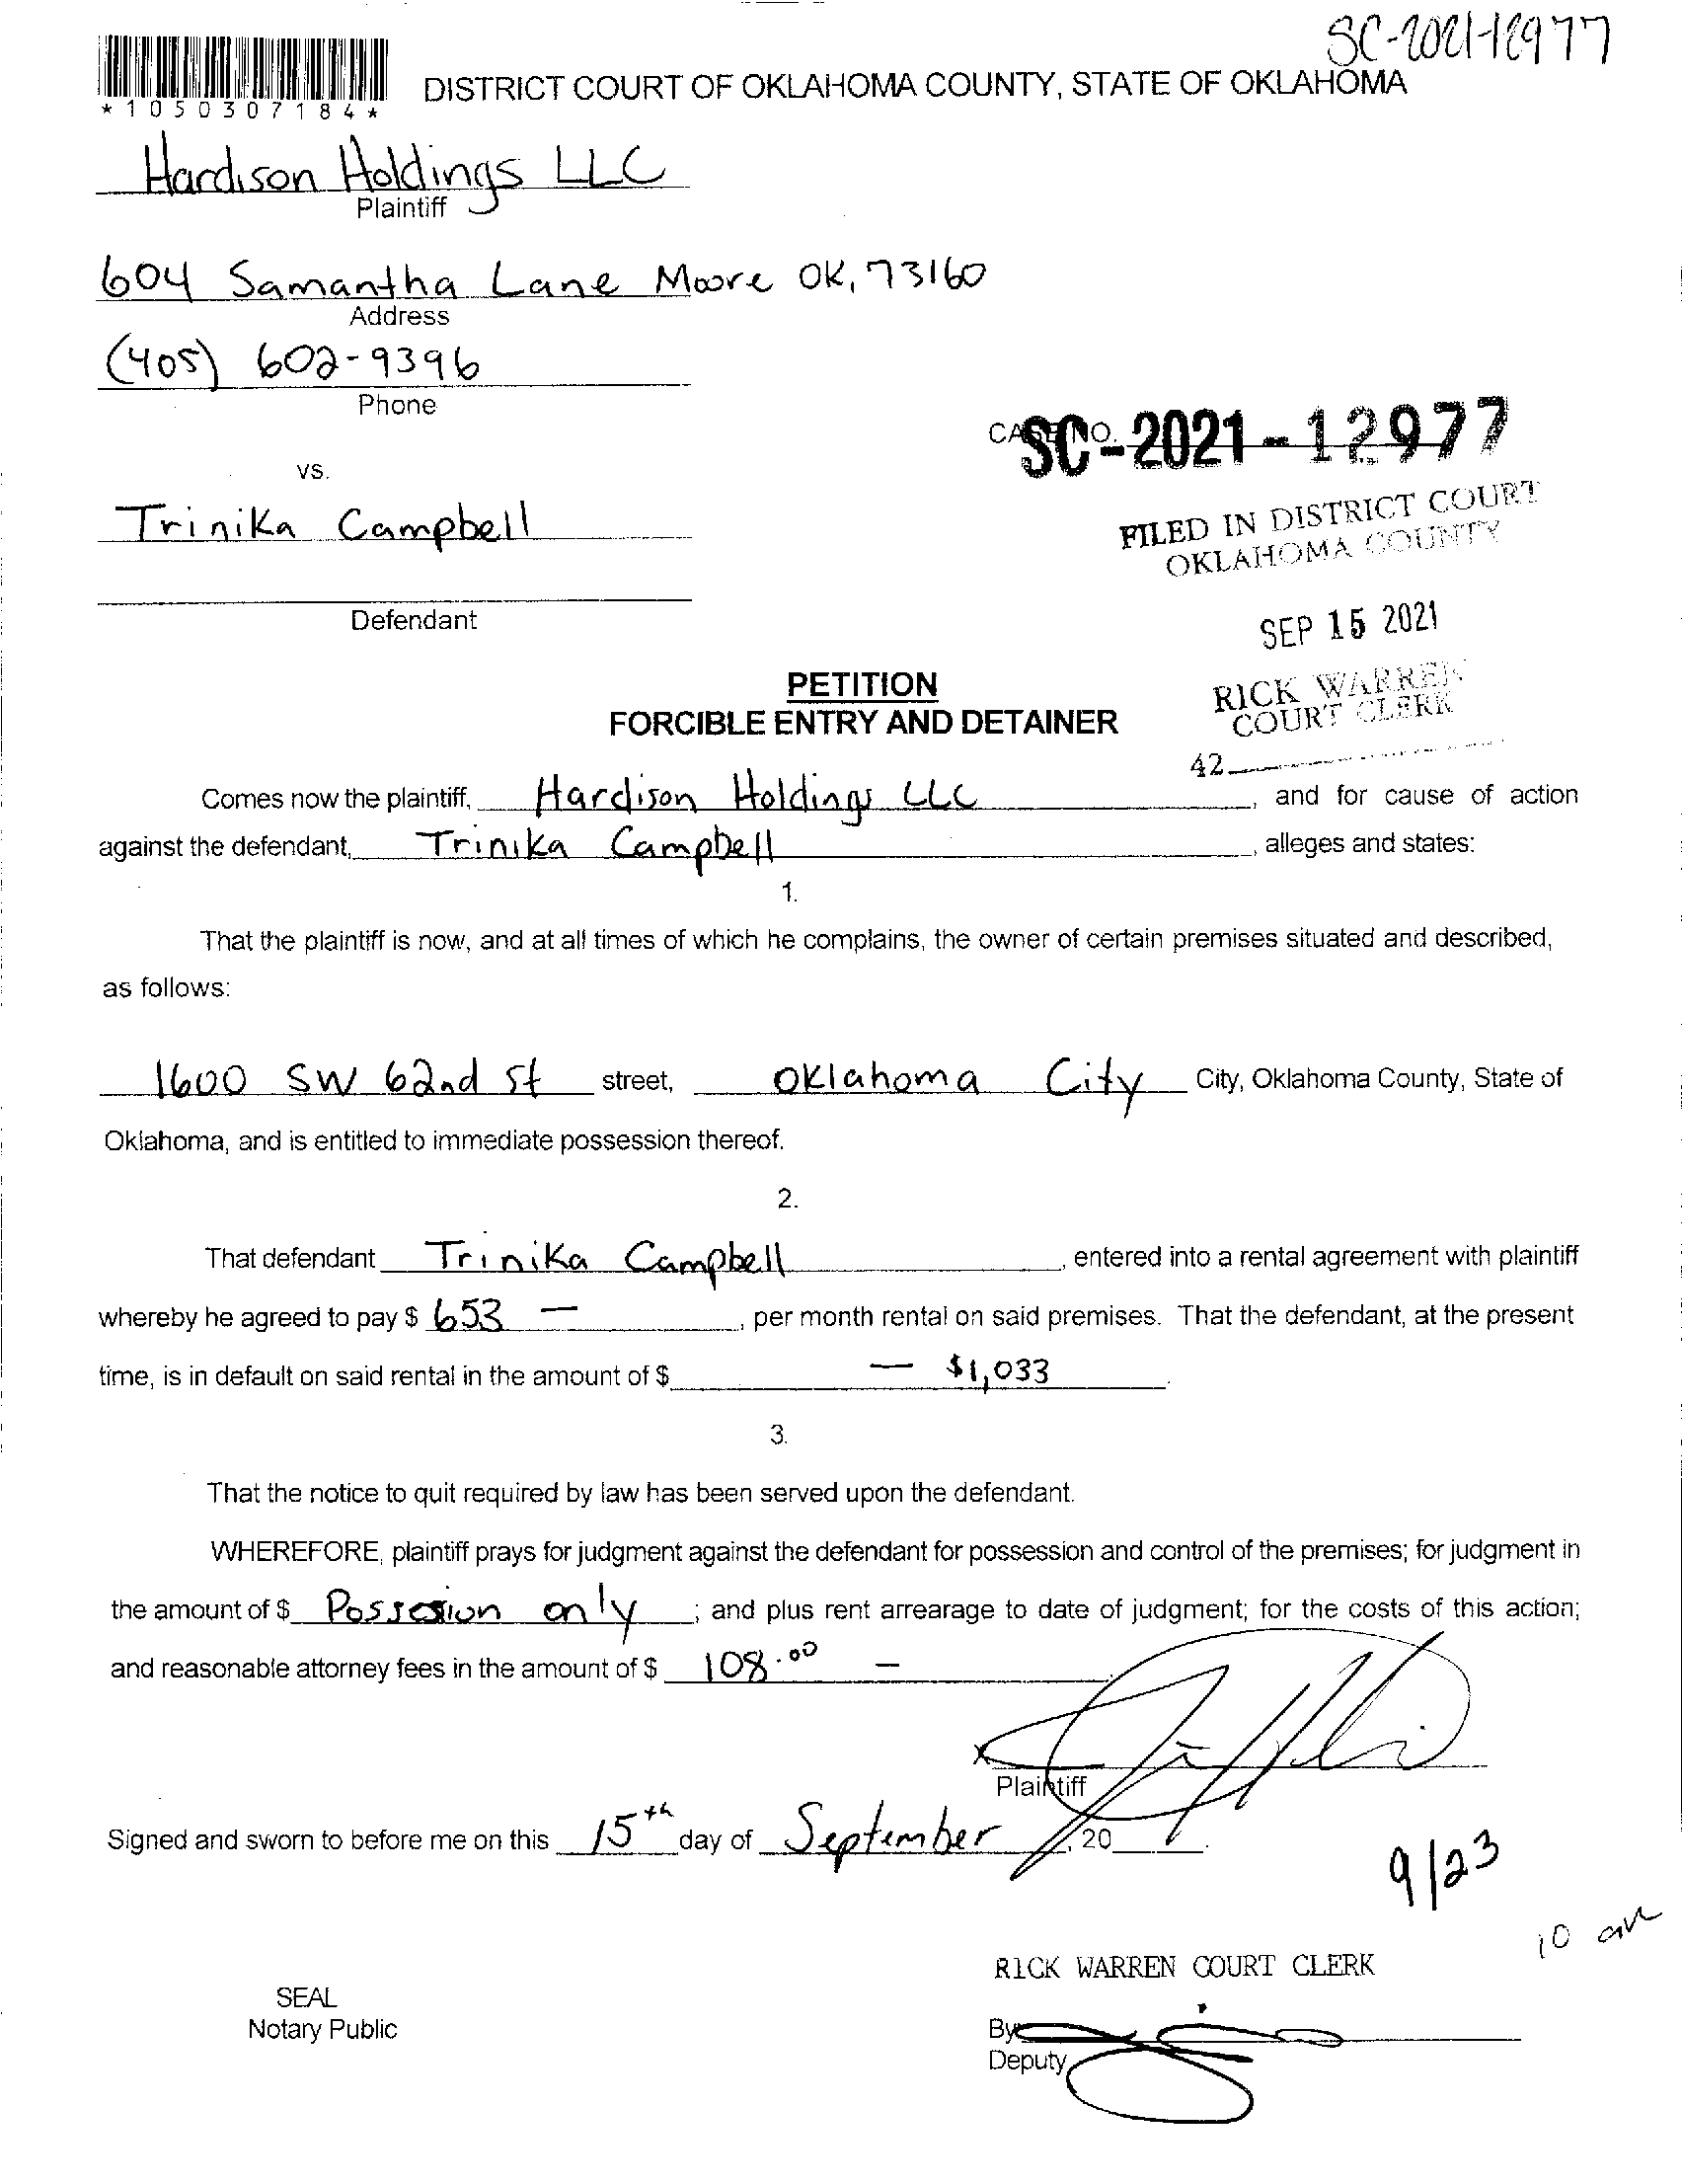 SC-2021-12977
*1050307184*
DISTRICT COURT OF OKLAHOMA COUNTY, STATE OF OKLAHOMA
Hardison Holdings LLC
Plaintiff
604 Samantha Lane Moore OK, 73160
Address
(405) 602-9396
Phone
CASE NO. SC-2021-12977
vs.
FILED IN DISTRICT COURT
OKLAHOMA COUNTY
Trinika Campbell
Defendant
SEP 15 2021
PETITION
RICK WARREN
COURT CLERK
FORCIBLE ENTRY AND DETAINER
42
Comes now the plaintiff, Hardison Holdings LLC, and for cause of action
against the defendant, Trinika Campbell, alleges and states:
1.
That the plaintiff is now, and at all times of which he complains, the owner of certain premises situated and described,
as follows:
1600 SW 62nd St street, Oklahoma City City, Oklahoma County, State of
Oklahoma, and is entitled to immediate possession thereof.
2.
That defendant Trinika Campbell, entered into a rental agreement with plaintiff
whereby he agreed to pay $ 653 —, per month rental on said premises. That the defendant, at the present
time, is in default on said rental in the amount of $ — $1,033.
3.
That the notice to quit required by law has been served upon the defendant.
WHEREFORE, plaintiff prays for judgment against the defendant for possession and control of the premises; for judgment in
the amount of $ Possesion only; and plus rent arrearage to date of judgment; for the costs of this action;
and reasonable attorney fees in the amount of $ 108.00 —
x
Plaintiff
Signed and sworn to before me on this 15th day of September, 20
9/23
10 am
RICK WARREN COURT CLERK
SEAL
Notary Public
By
Deputy